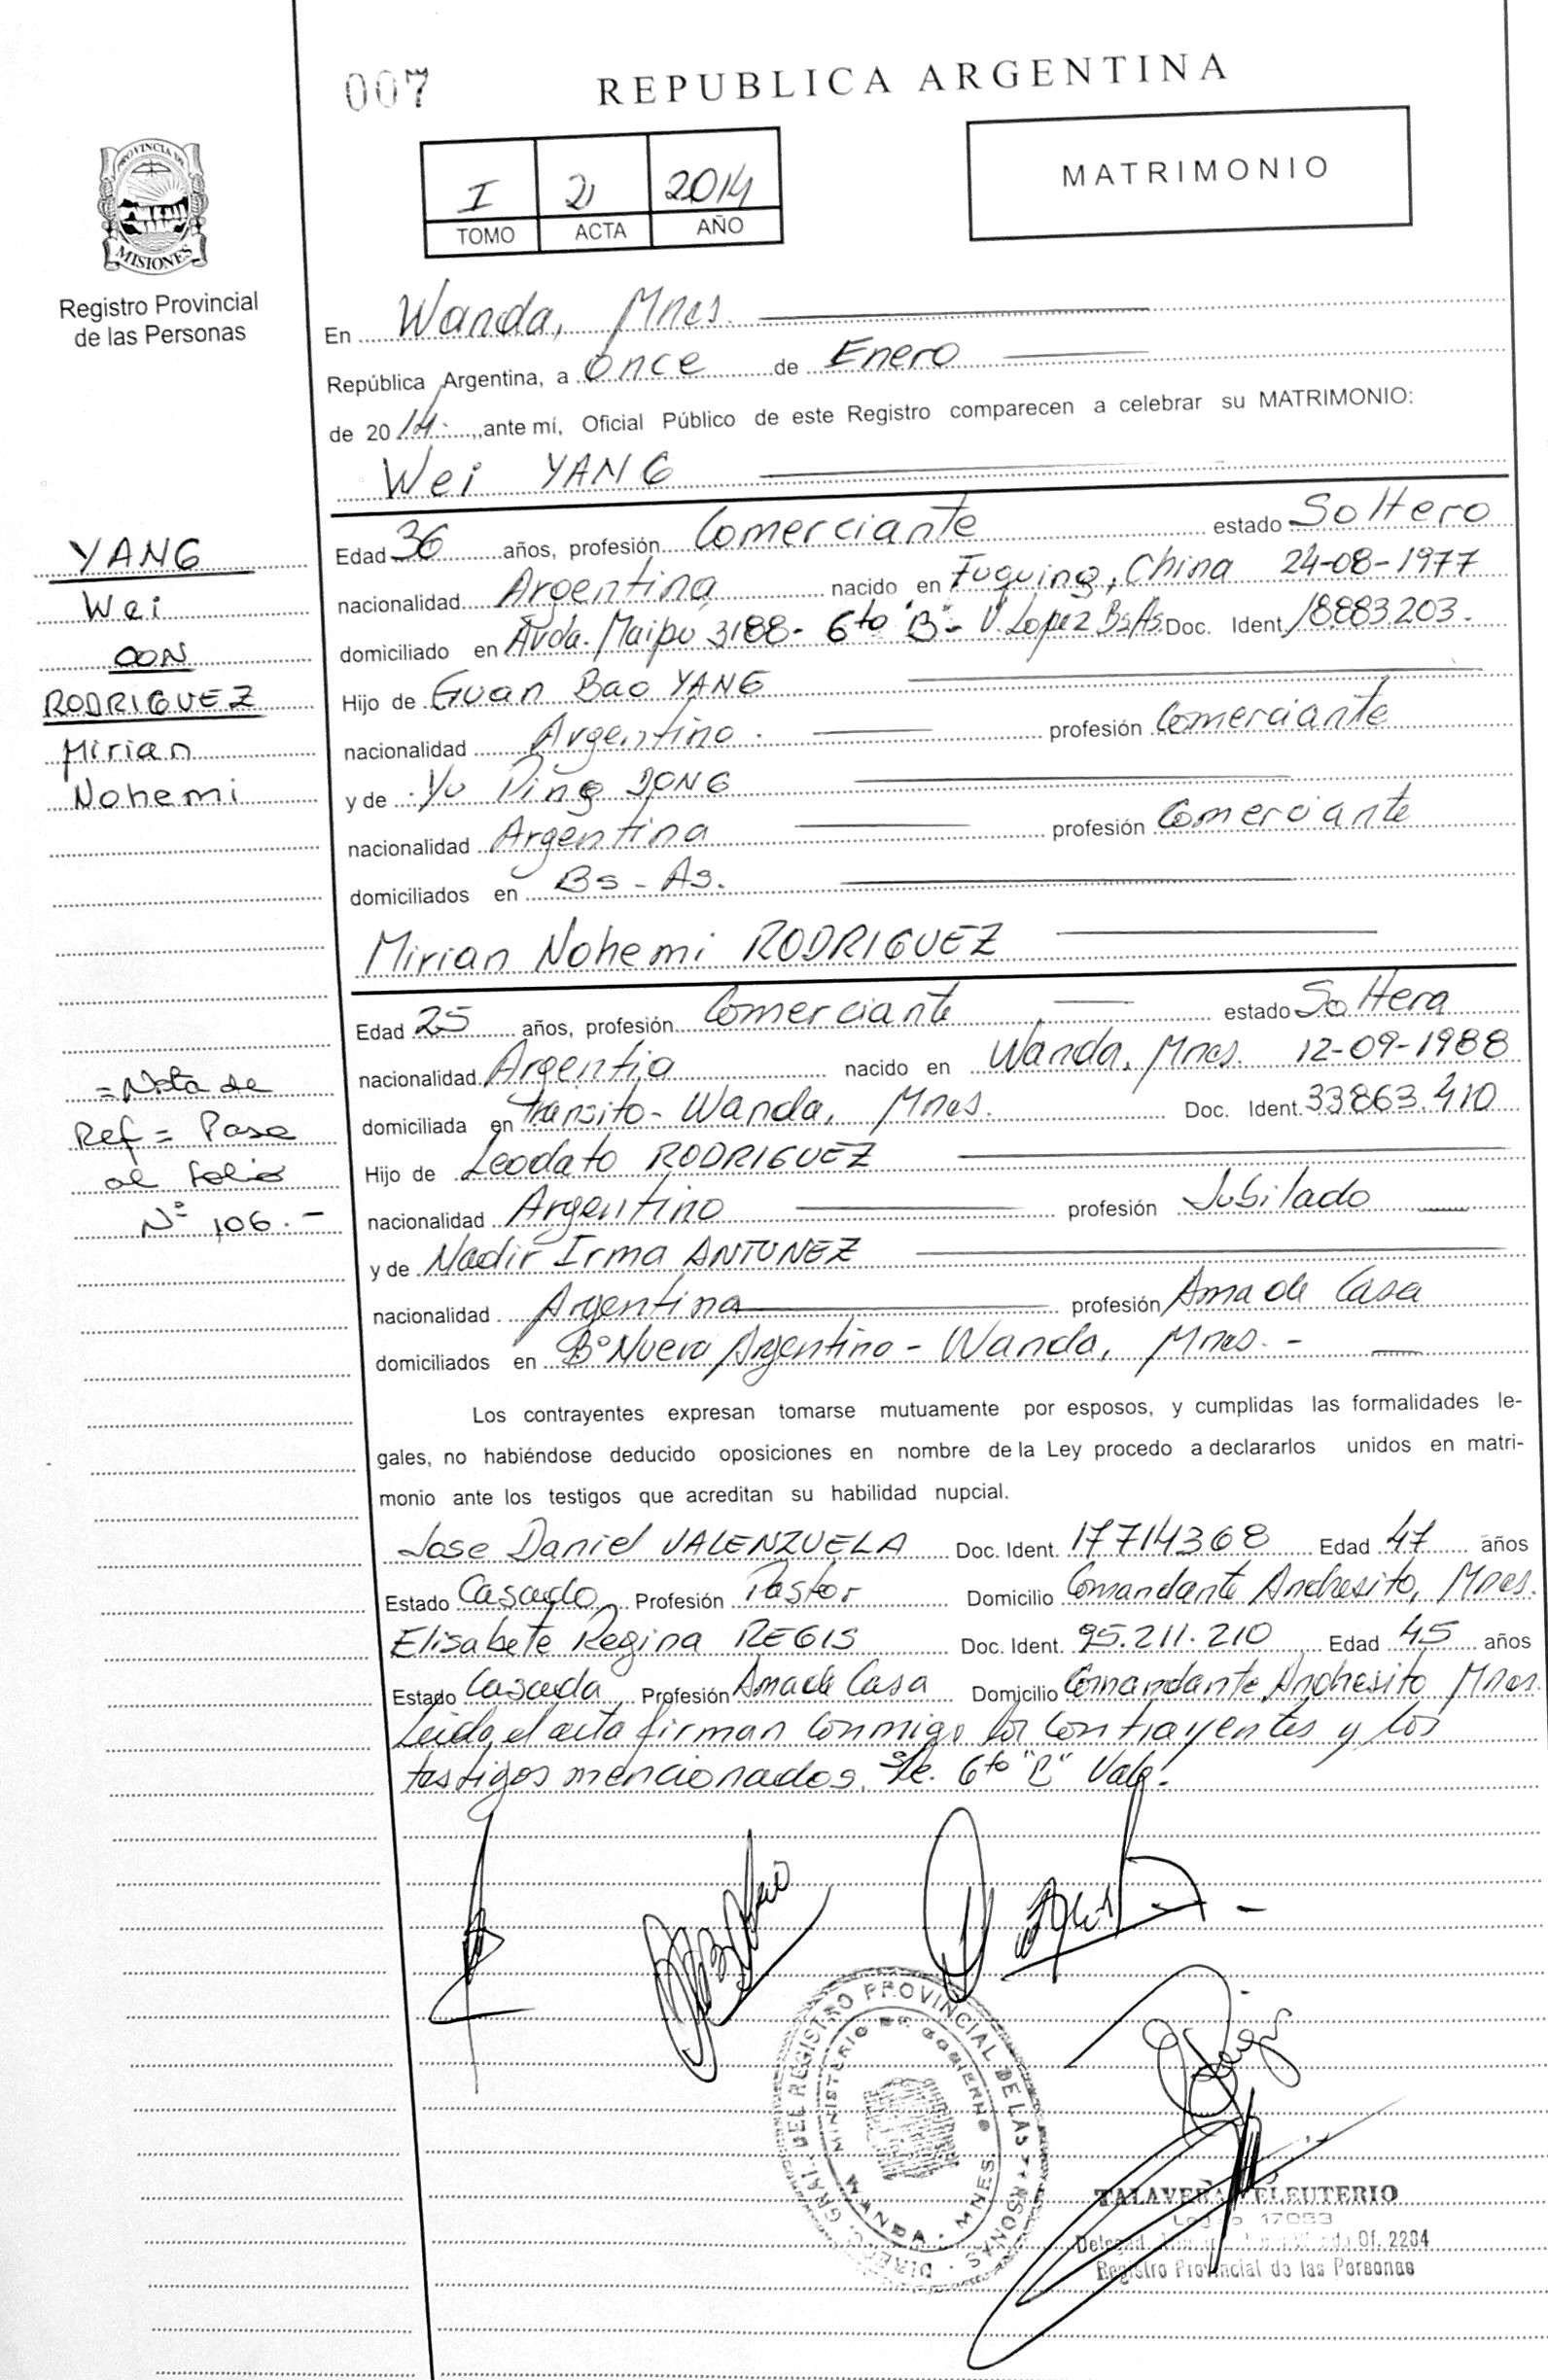 007
REPUBLICA ARGENTINA
I 2 2014
TOMO ACTA AÑO
MATRIMONIO
PROVINCIA DE
MISIONES
Registro Provincial
de las Personas
En Wanda, Mnes.
República Argentina, a Once de Enero
de 2014 ante mí, Oficial Público de este Registro comparecen a celebrar su MATRIMONIO:
Wei YANG
Edad 36 años, profesión Comerciante estado Soltero
nacionalidad Argentina nacido en Fuquing, China 24-08-1977
domiciliado en Avda. Maipú 3188- 6to "B"- V. Lopez Bs As. Doc. Ident. 18883203.-
Hijo de Guan Bao YANG
nacionalidad Argentino. profesión Comerciante
y de Yu Ping DONG
nacionalidad Argentina profesión Comerciante
domiciliados en Bs-As.
Mirian Nohemi RODRIGUEZ
Edad 25 años, profesión Comerciante estado Soltera
nacionalidad Argentia nacido en Wanda, Mnes. 12-09-1988
domiciliada en Tránsito- Wanda, Mnes. Doc. Ident. 33863.410
Hijo de Leodato RODRIGUEZ
nacionalidad Argentino profesión Jubilado
y de Nadir Irma ANTUNEZ
nacionalidad Argentina profesión Ama de Casa
domiciliados en B° Nuevo Argentino - Wanda, Mnes. -
Los contrayentes expresan tomarse mutuamente por esposos, y cumplidas las formalidades le-
gales, no habiéndose deducido oposiciones en nombre de la Ley procedo a declararlos unidos en matri-
monio ante los testigos que acreditan su habilidad nupcial.
Jose Daniel VALENZUELA Doc. Ident. 17714368 Edad 47 años
Estado Casado Profesión Pastor Domicilio Comandante Andresito, Mnes.
Elisabete Regina REGIS Doc. Ident. 95.211.210 Edad 45 años
Estado Casada Profesión Ama de Casa Domicilio Comandante Andresito Mnes.
Leida el acta firman conmigo los contrayentes y los
testigos mencionados. 6to Vale.-
YANG
Wei
CON
RODRIGUEZ
Mirian
Nohemi
=Nota de
Ref= Pase
al folio
N° 106.-
DIREC. GRAL. DEL REGISTRO PROVINCIAL DE LAS PERSONAS
MINISTERIO DE GOBIERNO
WANDA - MNES
TALAVERA ELEUTERIO
17053
Of. 2284
Registro Provincial de las Personas